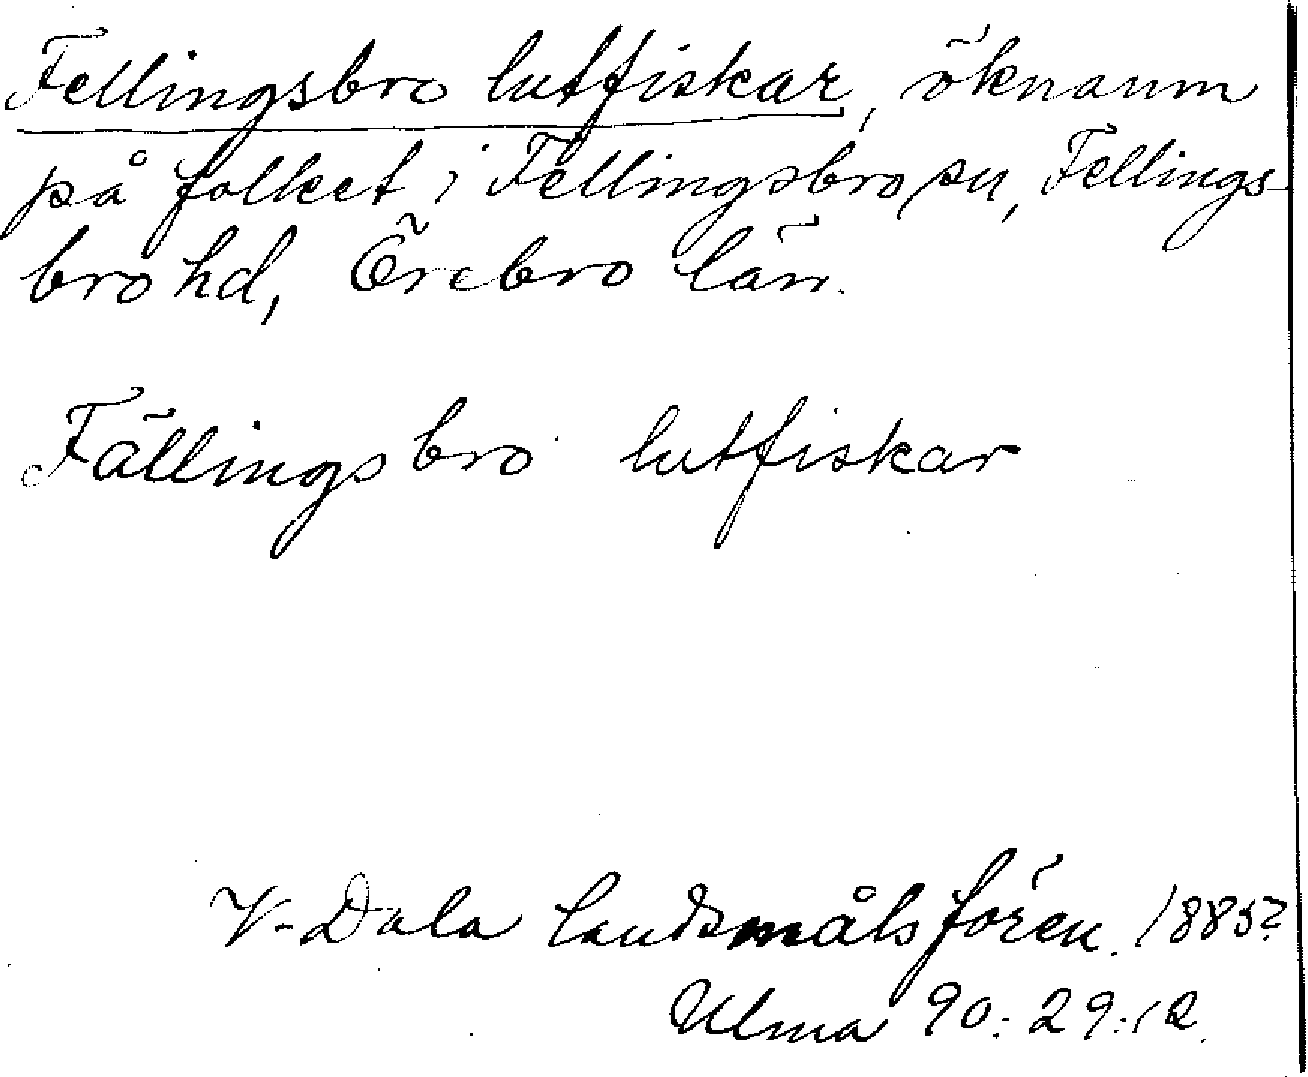 Fellingsbro lutfiskar, öknamn
på folket i Fellingsbro sn, Fellings-
bro hd, Örebro län.
Fällingsbro lutfiskar
V-Dala landsmålsfören. 1885?
Ulma 90:29:12.